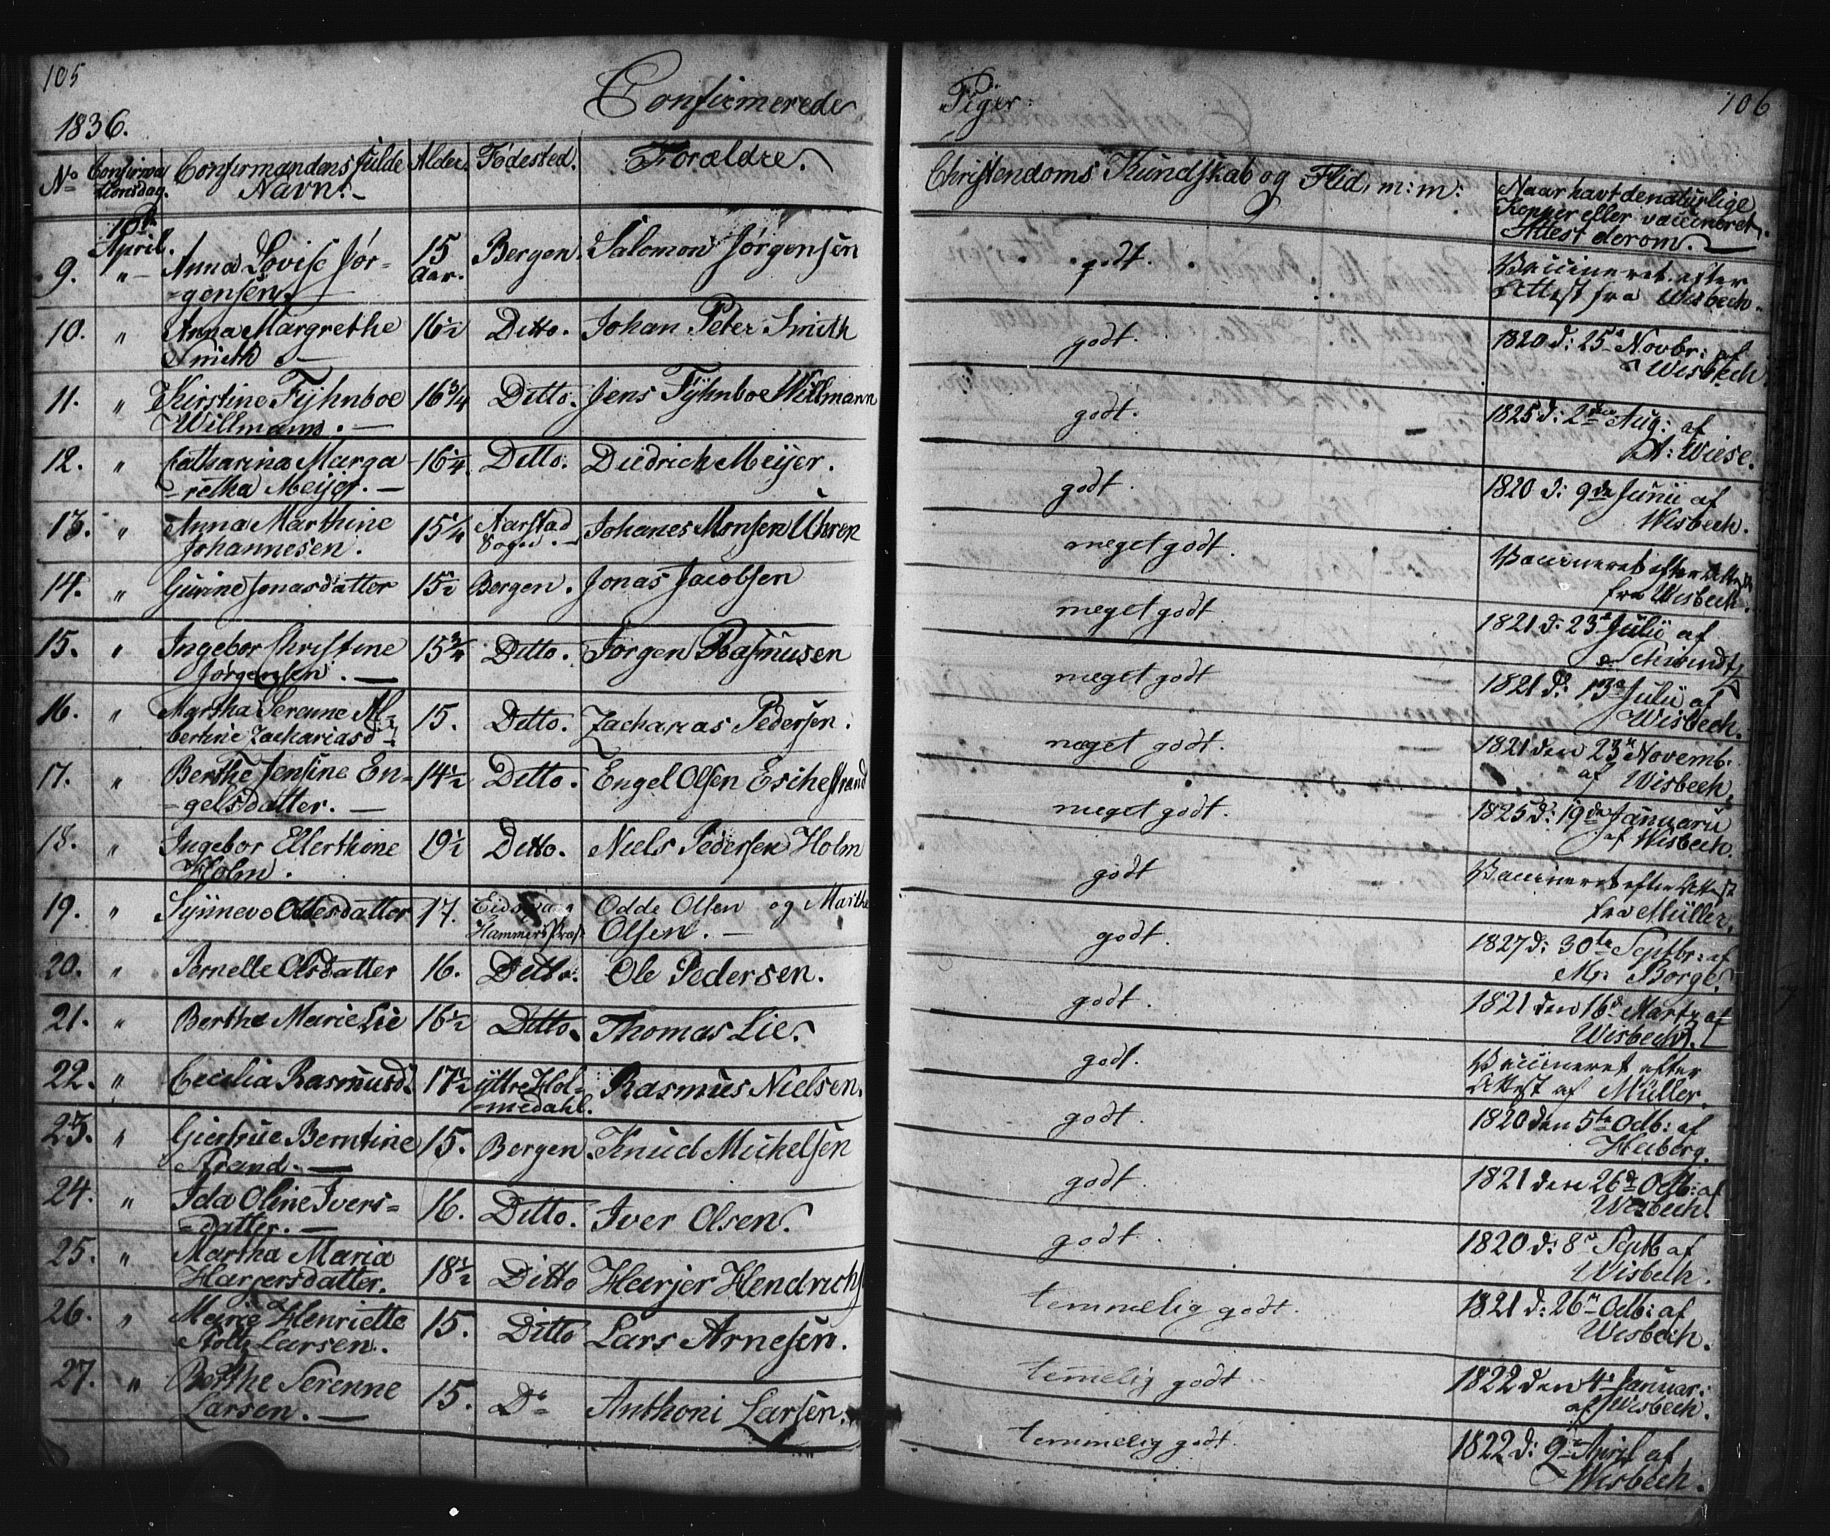 105
Confirmerede
1836.
No Confirmationsdag. Confirmandens fulde Navn. Alder. Fødested. Forældre.
10de April.
9. " Anna Lovise Jør- 15 Bergen. Salomon Jørgensen
-gensen. Aar.
10. " Anna Margrethe 16½ Ditto. Johan Peter Smith
Smith
11. " Kirstine Fÿhnboe 16¾ Ditto. Jens Fÿhnboe Willmann
Willmann.
12. " Catharina Marga 16¼ Ditto. Diedrich Meijer.
-retha Meijer.
13. " Anna Marthine 15¼ Aarstad Johanes Monsen Uhren
Johannesen. Sogn.
14. " Gurine Jonasdatter 15½ Bergen. Jonas Jacobsen
15. " Ingebor Christine 15¾ Ditto. Jørgen Rasmusen
Jørgensen.
16. " Martha Serenne Al- 15. Ditto. Zacharias Pedersen.
bertine Zachariasd
17. " Berthe Jensine En- 14½ Ditto. Engel Olsen Eichestrand
-gelsdatter.
18. " Ingebor Ellerthine 19½ Ditto. Niels Pedersen Holm
Holm.
19. " Synnevo Ottesdatter 17. Odde Olsen og Marthe
Hammers Præst Olsen.
20. " Pernelle Olsdatter 16. Ditto. Ole Pedersen.
21. " Berthe Marie Lie 16½ Ditto. Thomas Lie.
22. " Cecilia Rasmusd. 17½ ÿttre Hol- Rasmus Nielsen.
medahl.
23. " Giertrue Berntine 15. Bergen. Knud Michelsen
Strand.
24. " Ida Oline Ivers- 16. Ditto. Iver Olsen.
-datter.
25. " Martha Maria 18½ Ditto Harjer Hendrichs
Harjersdatter.
26. " Marie Henriette 15. Ditto Lars Arnesen.
Stoltz Larsen.
27. " Berthe Serenne 15. Do Anthoni Larsen.
Larsen.
Piger.
106
Christendoms Kundskab og Flid, m: m: Naar havt de naturlige
Kopper eller vaccineret,
Attest derom.
godt. Vaccineret efter
Attest fra Wisbech.
godt. 1820 d: 25d Novbr: af
Wisbech.
godt. 1825 d: 2den Aug: af
A: Wiese.
godt. 1820 d: 9de Junii af
Wisbech.
meget godt. Vaccineret efter Attest
fra Wisbech.
meget godt 1821 d: 23d Julii af
Schwindt
meget godt 1821 d: 13de Julii af
Wisbech.
meget godt. 1821 den 23n Novemb.
af Wisbech.
meget godt. 1825 d: 19de Januarii
af Wisbech.
godt Vaccineret efter Attest
fra Müller.
godt. 1827 d: 30te Septbr: af
Mr Borge.
godt. 1821 den 16d Martz af
Wisbech.
godt. Vaccineret efter
Attest af Müller.
godt. 1820 den 5te Octb: af
Heiberg.
godt. 1821 den 26de Octb: af
Wisbech.
godt. 1820 d: 8d Septb af
Wisbech.
temmelig godt. 1821 d: 26n Octb: af
Wisbech.
temelig godt 1822 den 4d Januar:
af Wisbech.
temmelig godt. 1822 d: 9de April af
Wisbech.